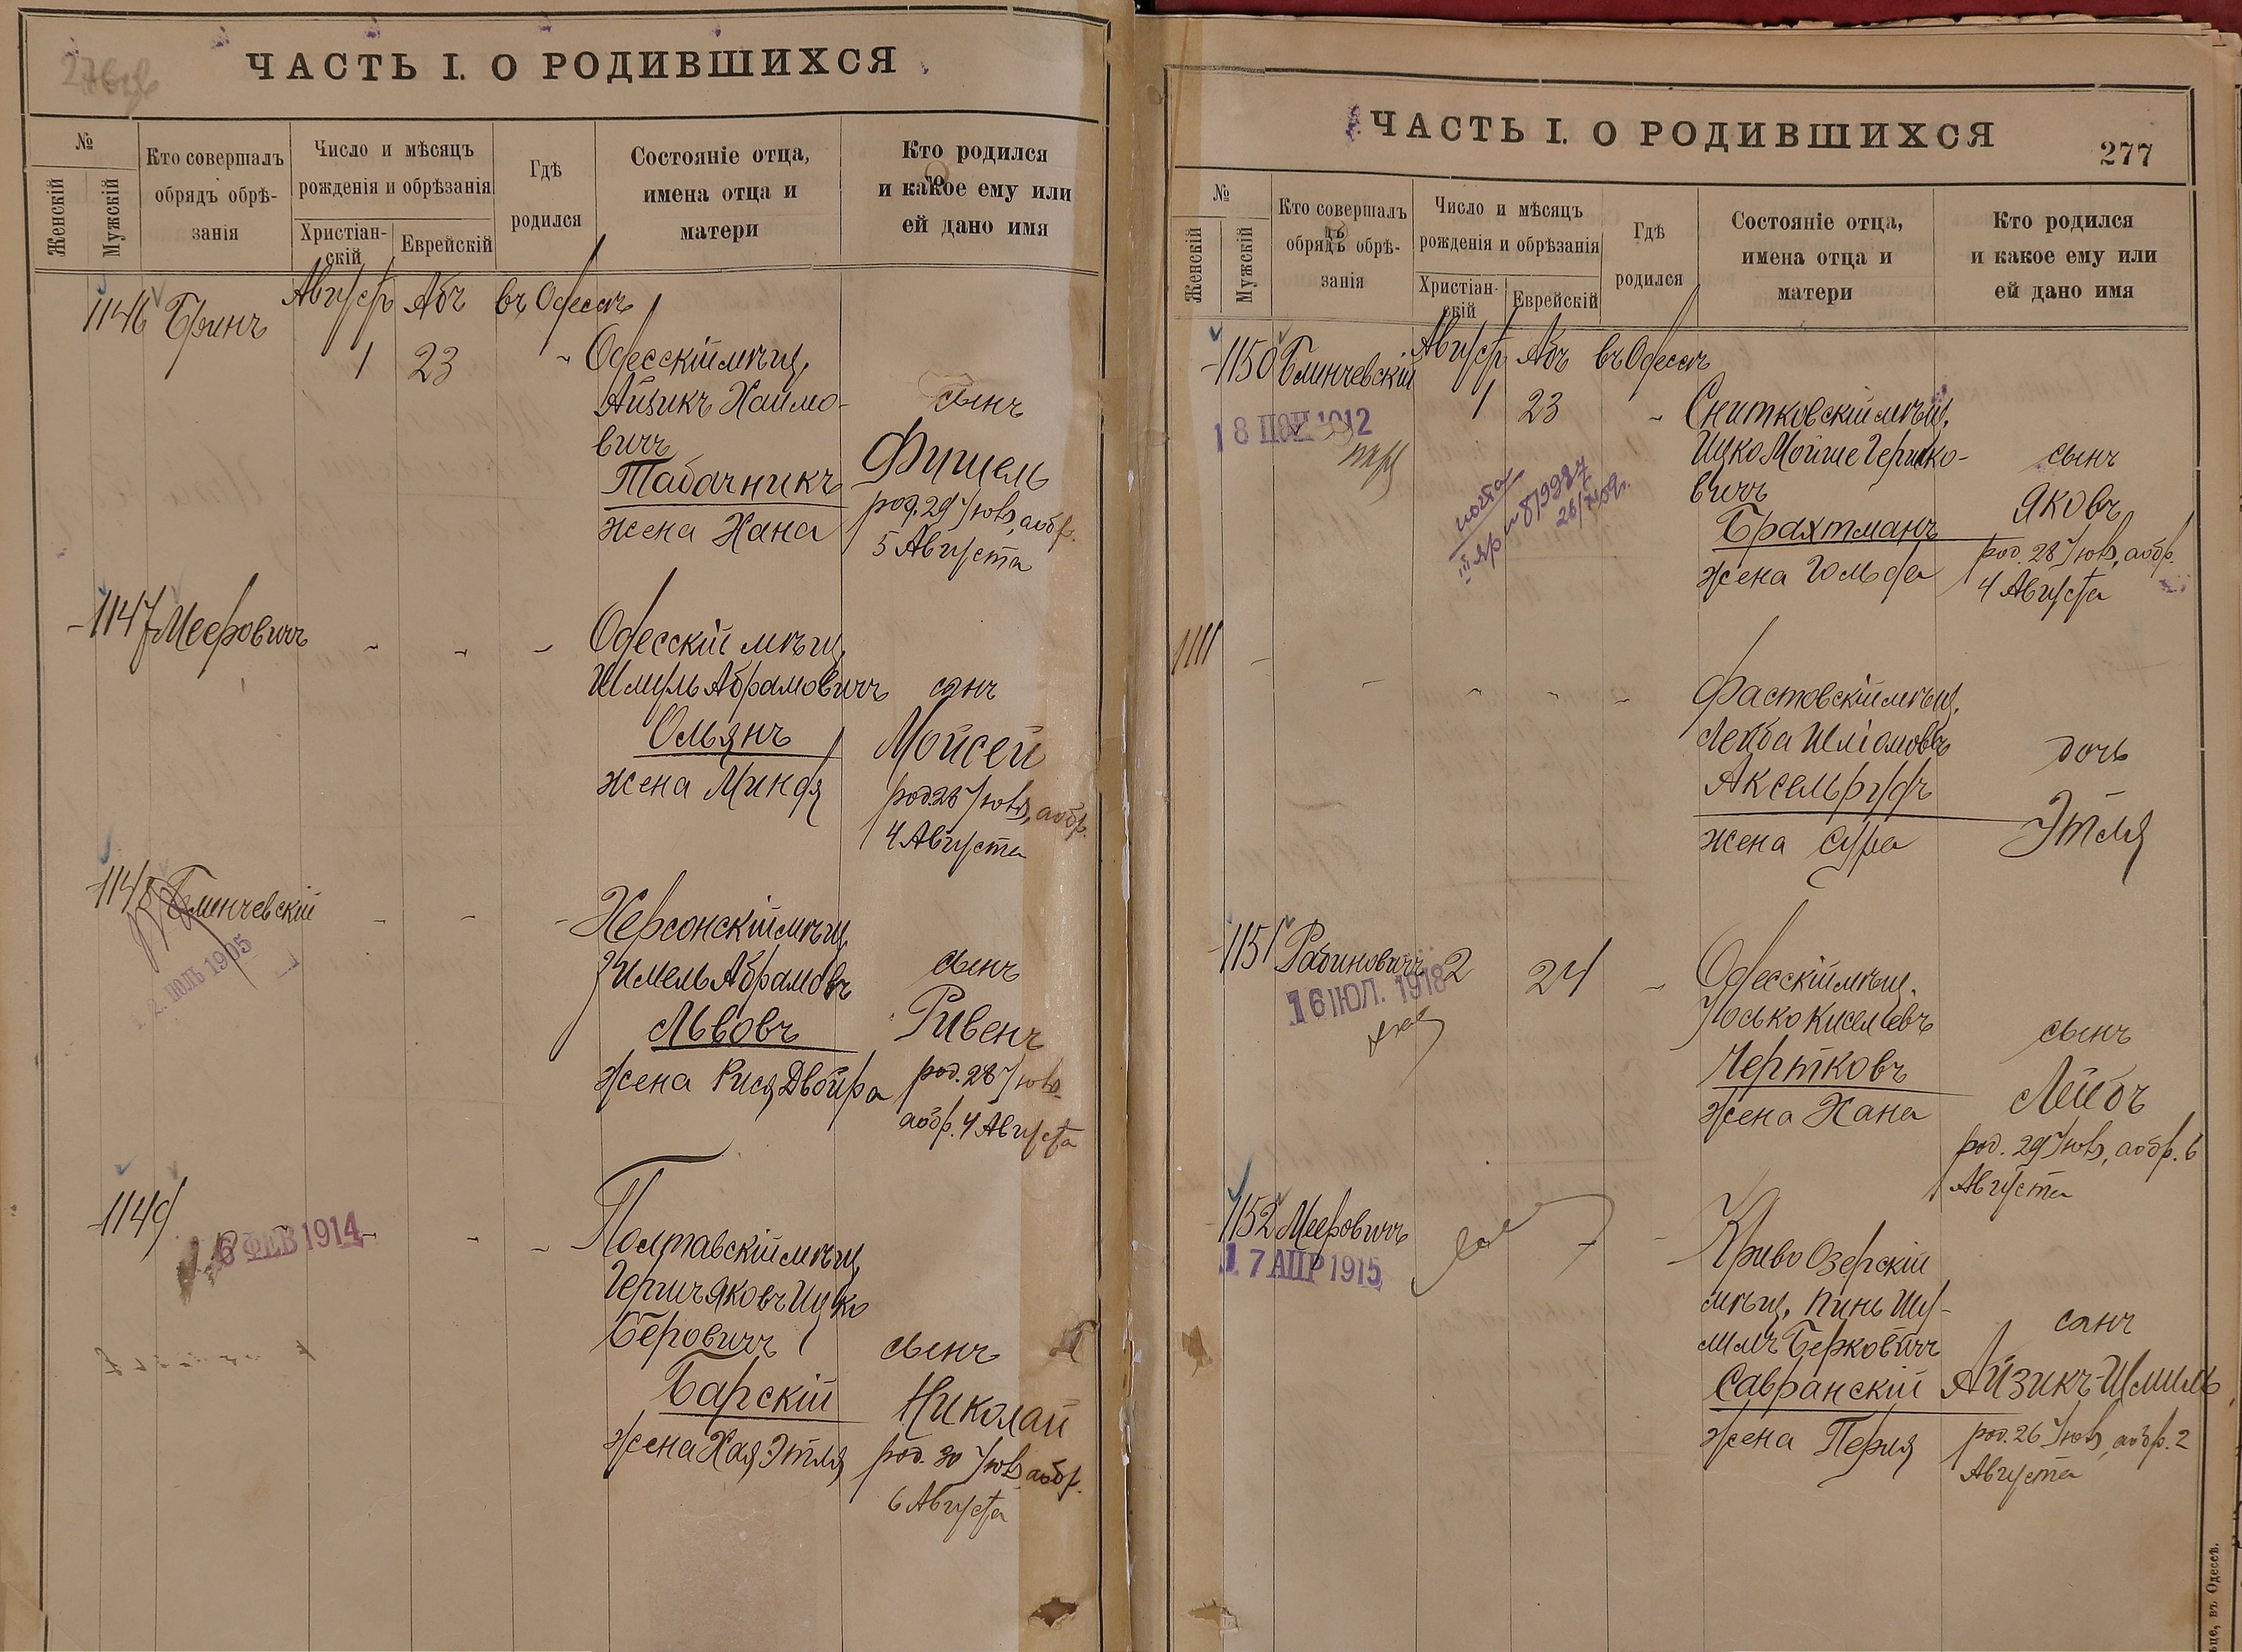 ЧАСТЬ I. О РОДИВШИХСЯ
№
Женскій
Мужскій
Кто совершалъ
обрядъ обрѣ-
занія
Число и мѣсяцъ
рожденія и обрѣзанія
Христіан-
скій
Еврейскій
Гдѣ
родился
Состояніе отца,
имена отца и
матери
Кто родился
и какое ему или
ей дано имя
1146 Бринъ Августъ Абъ въ Одессѣ
1 23 - Одесскій мѣщ.
Айзикъ Хаимо-
вичъ
Табачникъ
жена Хана
сынъ
Фишель
род. 29 Іюля, а обр.
5 Августа
1147 Мееровичъ - - - Одесскій мѣщ.
Шмуль Абрамовичъ
Ольянъ
жена Миндя
сынъ
Мойсей
род. 28 Іюля, а обр.
4 Августа
1148 Блинчевскій - - - Херсонскій мѣщ.
2. ІЮЛЬ 1905
Абрамовъ
Львовъ
жена Рися Двойра
сынъ
Рувенъ
род. 28 Іюля
а обр. 4 Августа
1149 - - - Полтавскій мѣщ.
6 ФЕВ 1914
Гершъ Яковъ Ицко
Беровичъ
Барскій
жена Хая Этля
сынъ
Николай
род. 30 Іюля, а обр.
6 Августа
ЧАСТЬ I. О РОДИВШИХСЯ
277
№
Женскій
Мужскій
Кто совершалъ
обрядъ обрѣ-
занія
Число и мѣсяцъ
рожденія и обрѣзанія
Христіан-
скій
Еврейскій
Гдѣ
родился
Состояніе отца,
имена отца и
матери
Кто родился
и какое ему или
ей дано имя
1150 Блинчевскій Августъ Абъ въ Одессѣ
1 23 - Снитковскій мѣщ.
Ицко Мойше Гершко-
вичъ
Брахтманъ
жена Гольда
сынъ
Яковъ
род. 28 Іюля, а обр.
4 Августа
1111 - - - - - Фастовскій мѣщ.
Лейба Шліомовъ
Аксельрудъ
жена Сура
дочь
Этля
1151 Рабиновичъ 2 24 - Одесскій мѣщ.
16 ІЮЛ. 1918
Іосько Киселевъ
Чертковъ
жена Хана
сынъ
Лейбъ
род. 29 Іюля, а обр. 6
Августа
1152 Мееровичъ - Криво Озерскій
17 АПР 1915
мѣщ. Пинь Шу-
лимъ Берковичъ
Савранскій
жена Перля
сынъ
Айзикъ-Шмиль
род. 26 Іюля, а обр. 2
Августа
въ Одессѣ.